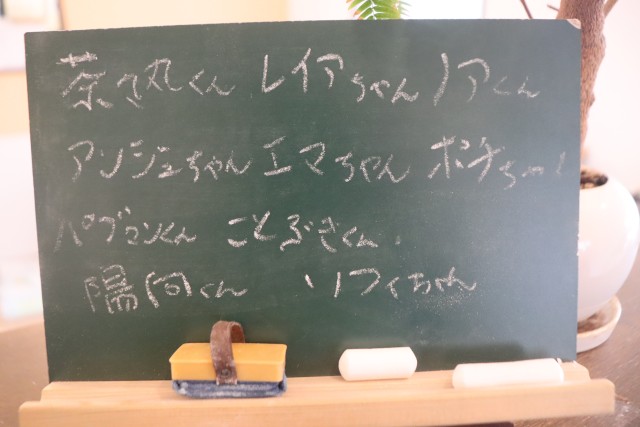 茶々丸くん レイアちゃん ノアくん
アンジェちゃん エマちゃん ポチちゃん
パグマンくん ことぶきくん
陽向くん ソフィちゃん